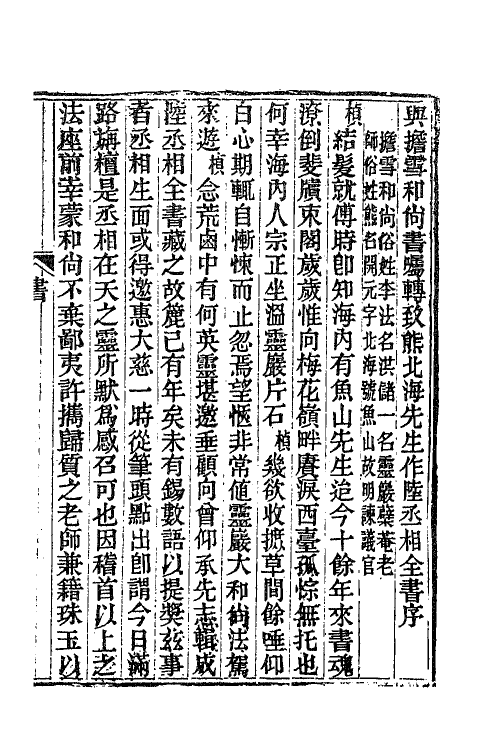 與擔雪和尙書囑轉致熊北海先生作陸丞相全書序
擔雪和尙俗姓李法名洪儲一名靈巖蘗菴老
師俗姓熊名開元字北海號魚山故明諫議官
楨結髮就傅時卽知海內有魚山先生迨今十餘年來書魂
潦倒斐牘束閣歲歲惟向梅花嶺畔賡淚西臺孤悰無托也
何幸海內人宗正坐溫靈巖片石楨幾欲收摭草間餘唾仰
白心期輒自慚悚而止忽焉望愜非常値靈巖大和尙法駕
來遊楨念荒鹵中有何英靈堪邀垂顧向曾仰承先志輯成
陸丞相全書藏之故簏已有年矣未有錫數語以提奬玆事
者丞相生面或得邀惠大慈一時從筆頭點出卽謂今日滿
路旃檀是丞相在天之靈所默爲感召可也因稽首以上之
法座前幸蒙和尙不棄鄙夷許攜歸質之老師兼籍珠玉以
書